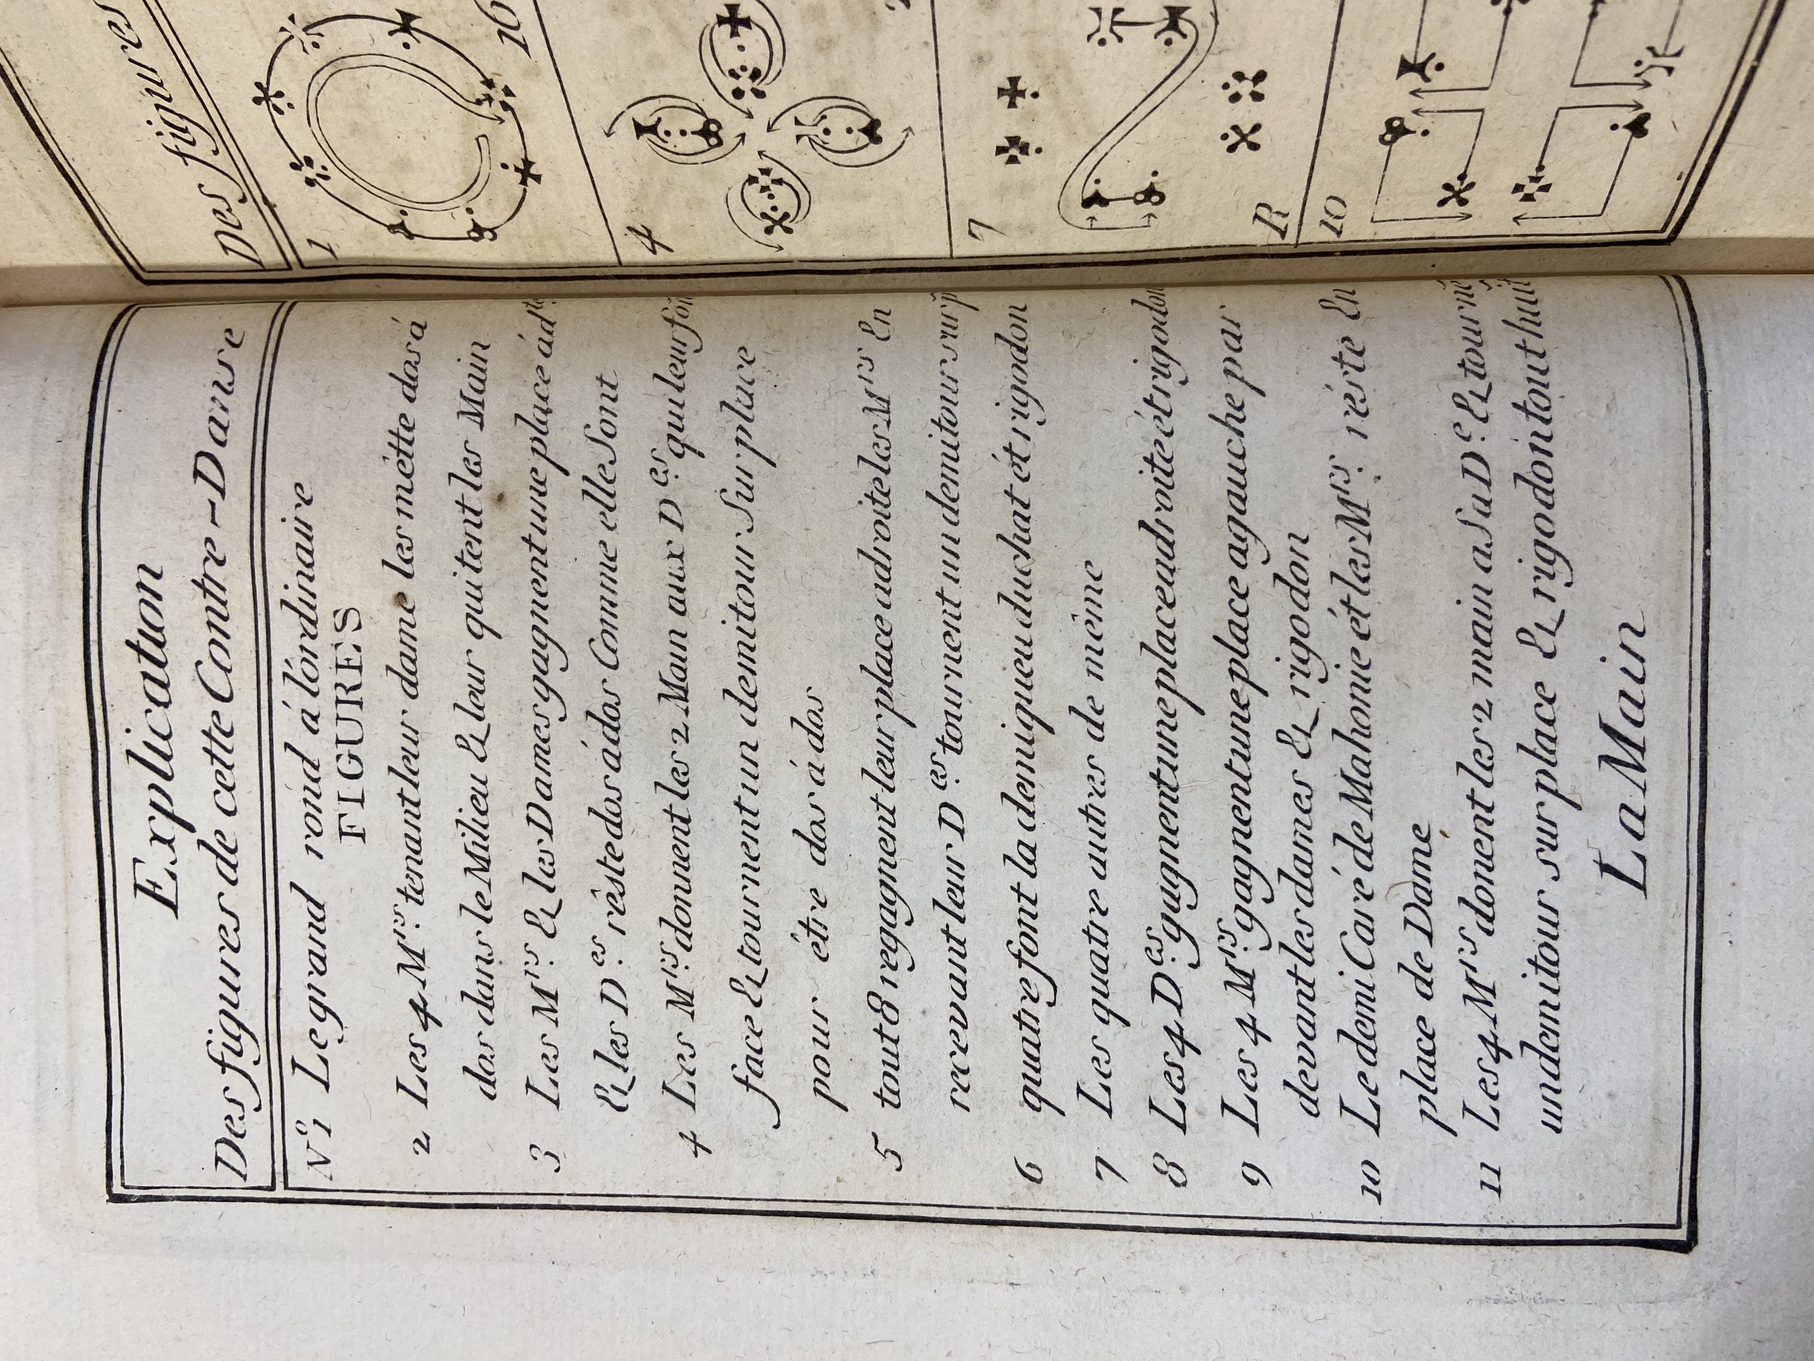 Explication
Des figures de cette Contre-Danse
N.º 1 Le grand rond á l'órdinaire
FIGURES
2 Les 4 M.rs tenant leur dame les métte dos á
dos dans le Milieu & leur quitent les Main
3 Les M.rs & les Dames gagnent une place á
& les D.es réste dos á dos Comme elle Sont
4 Les M.rs donnent les 2 Main aux D.es qui leur
face & tournent un demi tour Sur place
pour étre dos á dos
5 tout 8 regagnent leur place a droite les M.rs En
recevant leur D.es tournent un demi tour sur
6 quatre font la demi queu du chat ét rigodon
7 Les quatre autres de même
8 Les 4 D.es gagnent une place a droite ét rigodon
9 Les 4 M.rs gagnent une place a gauche par
devant les dames & rigodon
10 Le demi Caré de Mahonie ét les M.rs réste En
place de Dame
11 Les 4 M.rs donent les 2 main a Sa D.e & tourne
un demi tour sur place & rigodon tout huit
La Main
Des figures
1
16
4
7
R
10